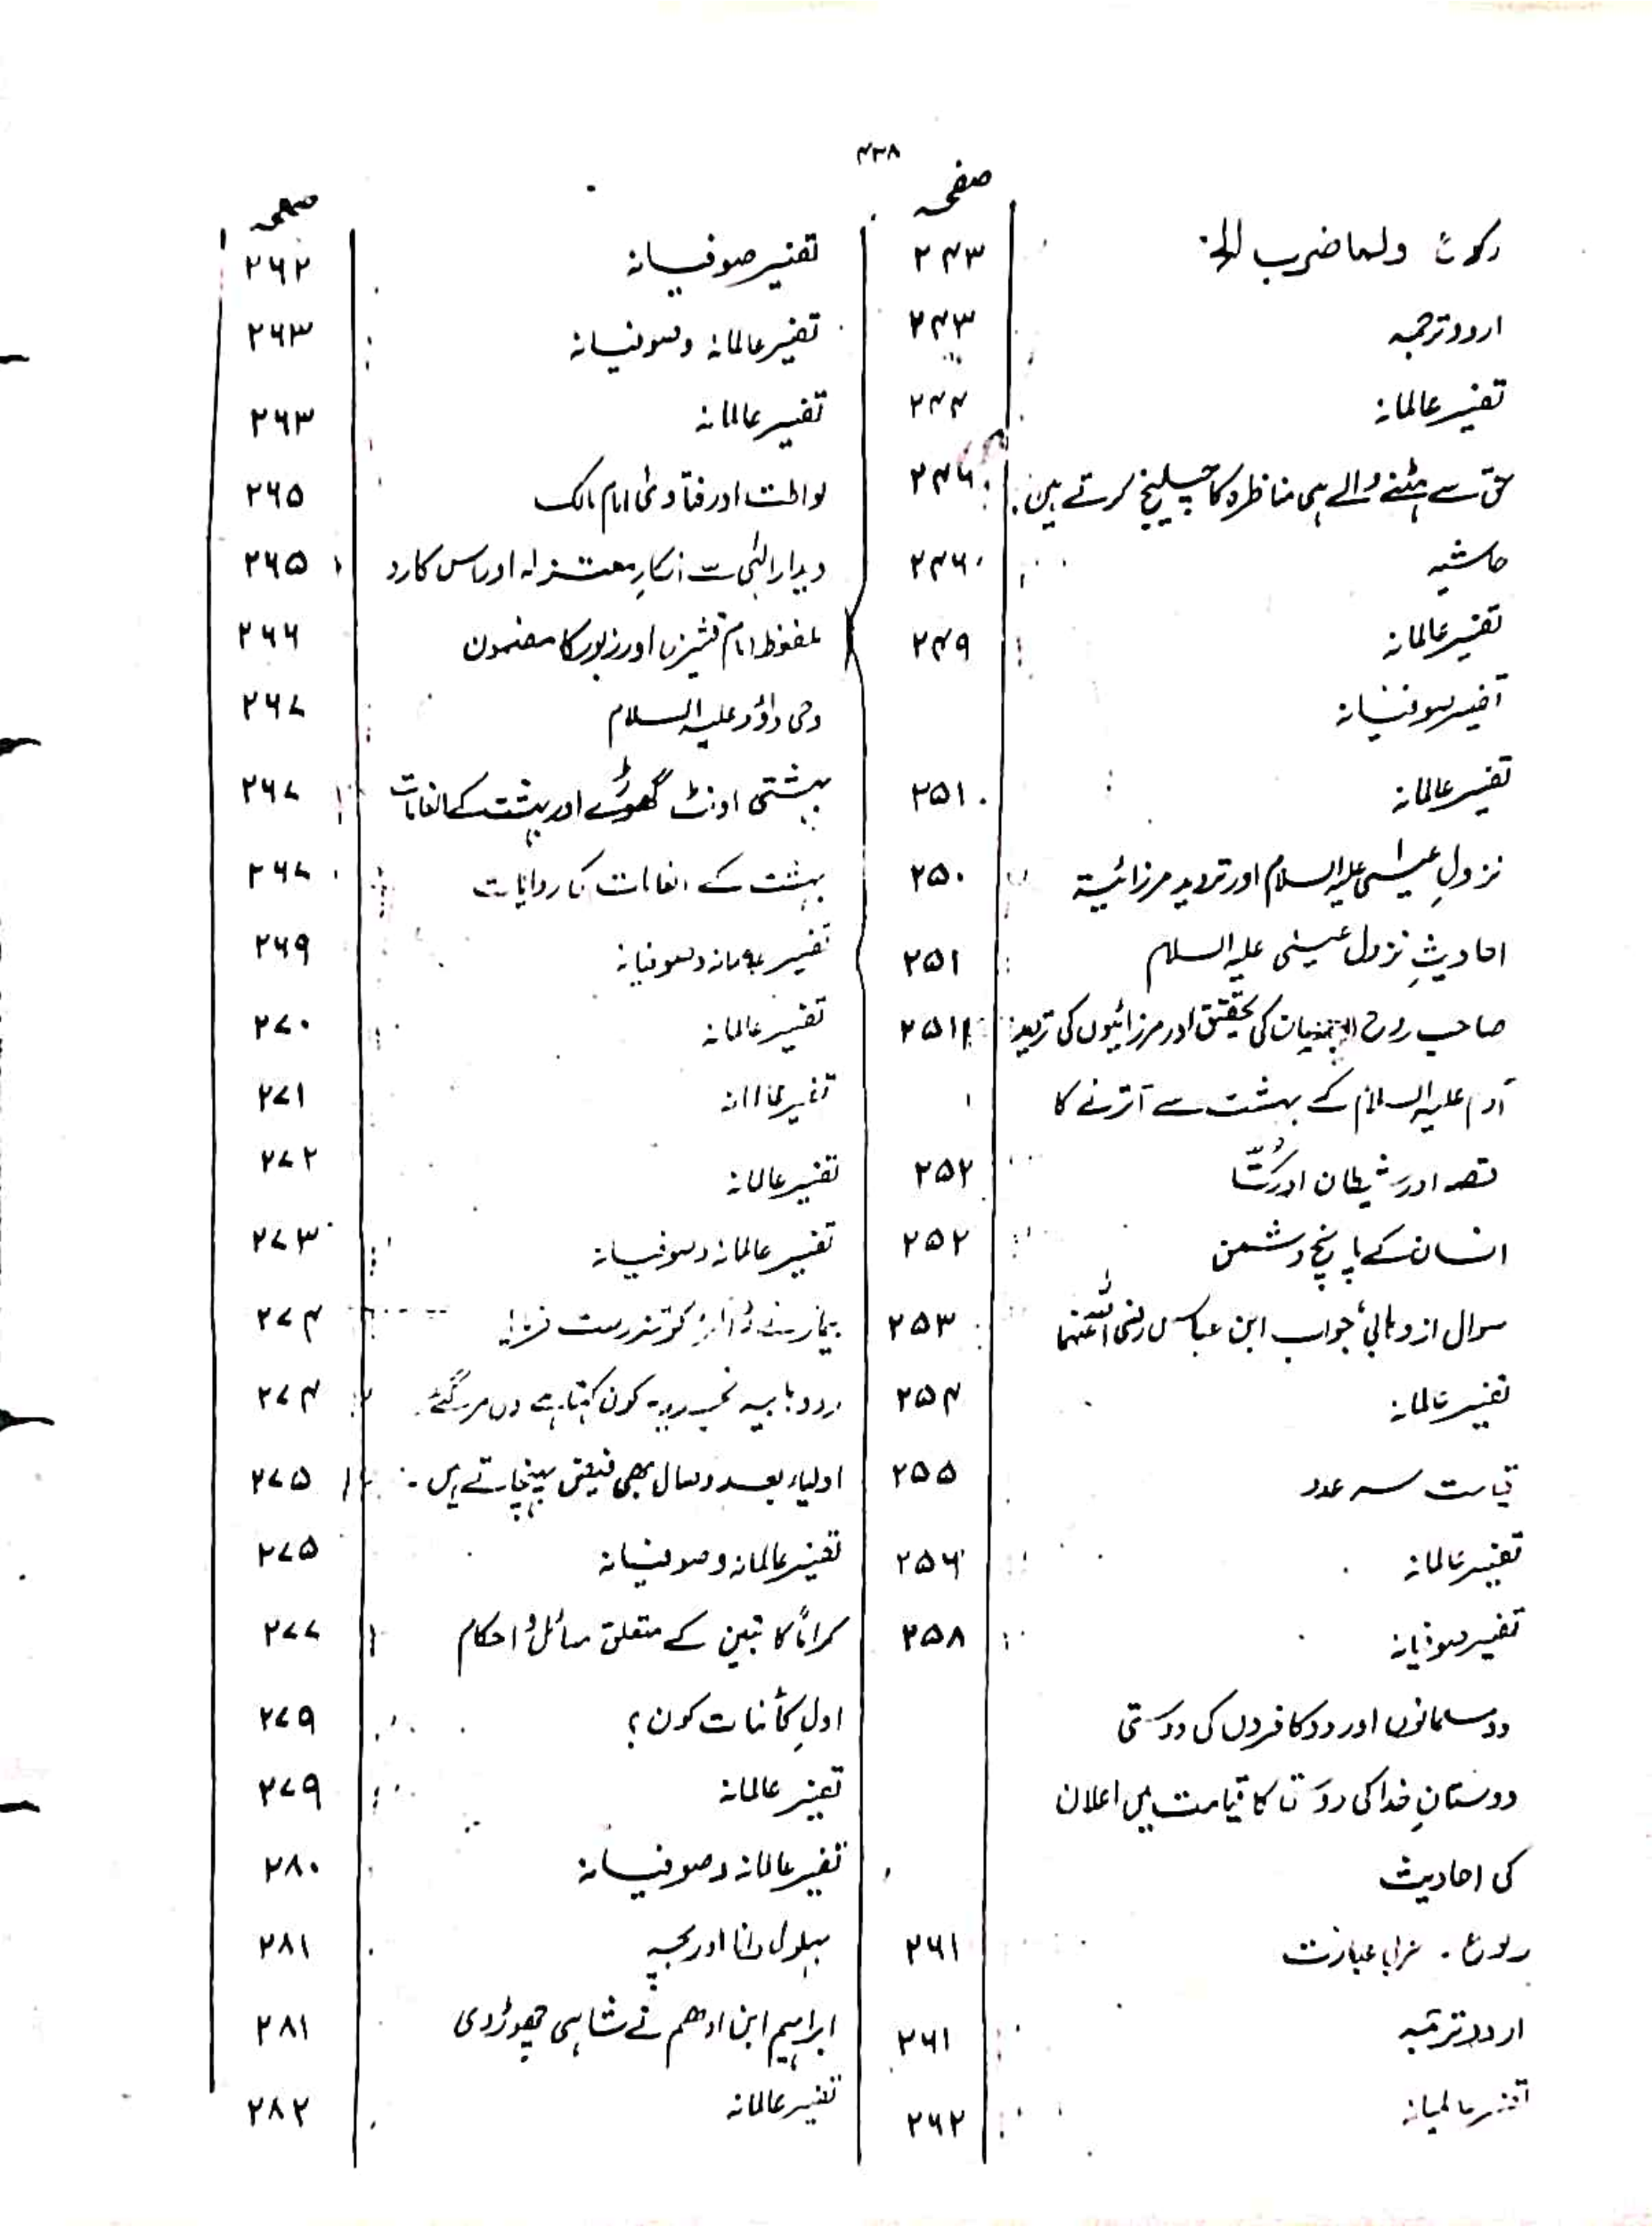 ۴۳۸
صفحہ
رکوع ولما ضرب الخ ۲۴۳
اردو ترجمہ ۲۴۳
تفسیر عالمانہ ۲۴۴
حق سے ہٹنے والے ہی مناظرہ کا چیلنج کرتے ہیں. ۲۴۶
حاشیہ ۲۴۶
تفسیر عالمانہ ۲۴۹
تفسیر صوفیانہ
تفسیر عالمانہ ۲۵۱
نزولِ عیسیٰ علیہ السلام اور تردید مرزائیت ۲۵۰
احادیثِ نزول عیسیٰ علیہ السلام ۲۵۱
صاحب روح البیان کی تحقیق اور مرزائیوں کی تردید ۲۵۱
آدم علیہ السلام کے بہشت سے اترنے کا
قصہ اور شیطان اور کُتّا ۲۵۲
انسان کے پانچ دشمن ۲۵۲
سوال از وہابی جواب ابن عباس رضی اللہ عنہما ۲۵۳
تفسیر عالمانہ ۲۵۴
قیامت سہ عدد ۲۵۵
تفسیر عالمانہ ۲۵۶
تفسیر صوفیانہ ۲۵۸
دو مسلمانوں اور دو کافروں کی دوستی
دوستانِ خدا کی دوستی کا قیامت میں اعلان
کی احادیث
رکوع . عبارت ۲۶۱
اردو ترجمہ ۲۶۱
تفسیر عالمانہ ۲۶۲
صفحہ
تفسیر صوفیانہ ۲۶۲
تفسیر عالمانہ و صوفیانہ ۲۶۳
تفسیر عالمانہ ۲۶۳
لواطت اور فتاویٰ امام مالک ۲۶۵
دیدار الٰہی سے انکارِ معتزلہ اور اس کا رد ۲۶۵
ملفوظ امام قشیری اور زبور کا مضمون ۲۶۶
وحی داؤد علیہ السلام ۲۶۷
بہشتی اونٹ گھوڑے اور بہشت کے انعامات ۲۶۷
بہشت کے انعامات کی روایات ۲۶۷
تفسیر عالمانہ و صوفیانہ ۲۶۹
تفسیر عالمانہ ۲۷۰
تفسیر عالمانہ ۲۷۱
تفسیر عالمانہ ۲۷۲
تفسیر عالمانہ و صوفیانہ ۲۷۳
بیمار نے کو تندرست فرمایا ۲۷۴
کون کہتا ہے ولی مر گئے ۲۷۴
اولیاء بعد وصال بھی فیض پہنچاتے ہیں . ۲۷۵
تفسیر عالمانہ و صوفیانہ ۲۷۵
کراماً کاتبین کے متعلق مسائل و احکام ۲۷۷
اولِ کائنات کون ؟ ۲۷۹
تفسیر عالمانہ ۲۷۹
تفسیر عالمانہ و صوفیانہ ۲۸۰
بہلول دانا اور بچہ ۲۸۱
ابراہیم ابن ادھم نے شاہی چھوڑ دی ۲۸۱
تفسیر عالمانہ ۲۸۲